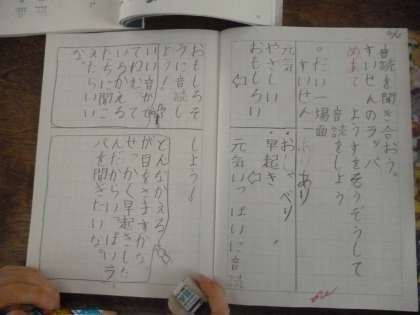 音読を聞き合おう。
すいせんのラッパ
めあて
ようすをそうぞうして
音読をしよう
だい一場面
すいせん
あり
元気
やさしい
おもしろい
・おしゃべり
・早起き
元気いっぱいに音読
しよう!
おもしろそ
うに音読し
よう!
いい音が
いろかえる
たちに聞こ
えたらいい
な。
どんなかえる
が目をさますかな
せっかく早起きした
んだからいっぱいラッ
パを聞きたいな。